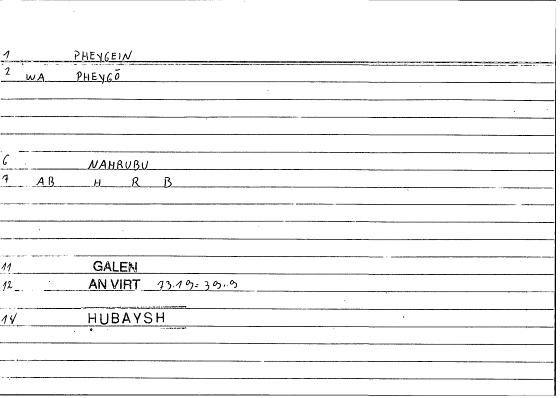 1 PHEYGEIN
2 WA PHEYGŌ
6 NAHRUBU
7 AB H R B
11 GALEN
12 AN VIRT
14 HUBAYSH